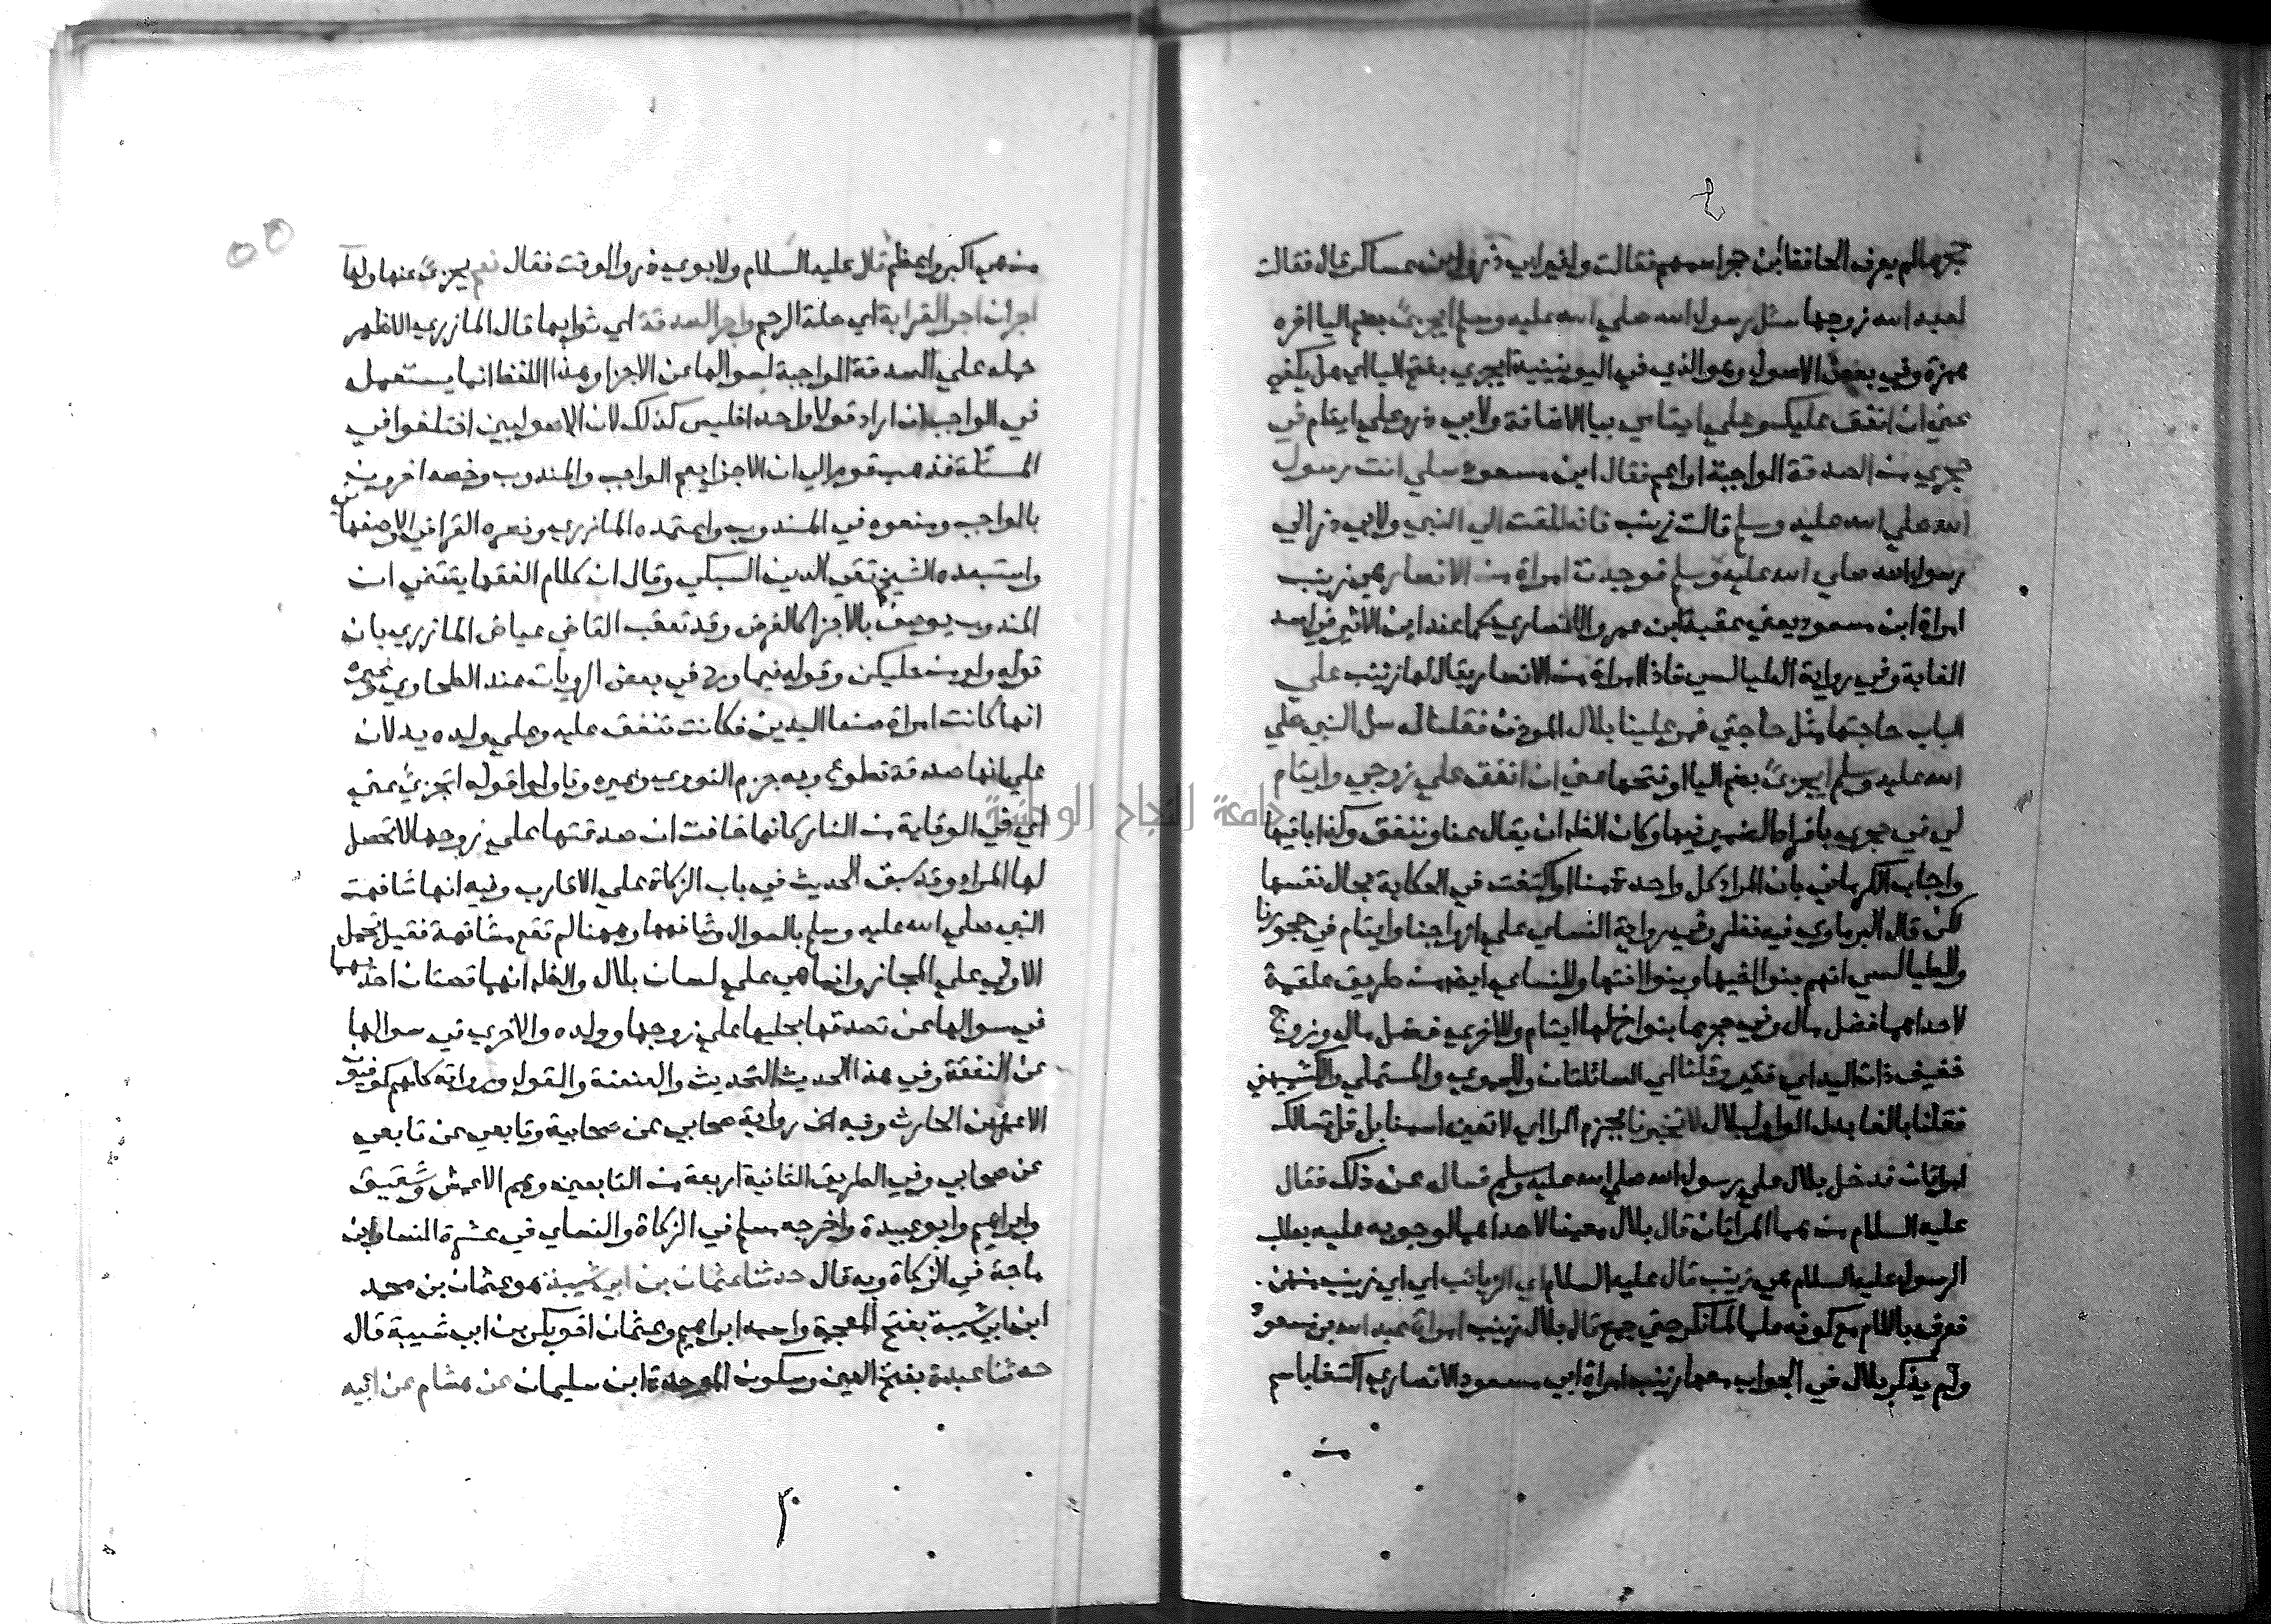 حجرها لم يعرف الحافظ ابن حجر اسمهم فقالت ولغير ابي ذر وابن عساكر قال فقالت
لعبد الله زوجها سئل رسول الله صلي الله عليه وسلم ايجزئ بضم اليا اخره
همزة وفي بعض الاصول وهو الذي في اليونينية ايجزي بفتح اليا اي هل يكفي
عني ان انفق عليك وعلي ايتامي بيا الاضافة ولابي ذر وعلي ايتام في
حجري من الصدقة الواجبة او اعم فقال ابن مسعود سلي انت رسول
الله صلي الله عليه وسلم قالت زينب فانطلقت الي النبي ولابي ذر الي
رسول الله صلي الله عليه وسلم فوجدت امراة من الانصار هي زينب
امراة ابن مسعود يعني عقبة ابن عمرو الانصاري كما عند ابن الاثير في اسد
الغابة وفي رواية الطيالسي فاذا امراة من الانصار يقال لها زينب علي
الباب حاجتها مثل حاجتي فمر علينا بلال الموذن فقلنا له سل النبي صلي
الله عليه وسلم ايجزئ بضم اليا او فتحها عني ان انفق علي زوجي وايتام
لي في حجري بافراد الضمير فيها وكان الظاهر ان يقال عنا وننفق وكذا باقيها
واجاب الكرماني بان المراد كل واحدة منا او اكتفت في الحكاية بحال نفسها
لكن قال البرماوي فيه نظر وفي رواية النساي علي ازواجنا وايتام في حجورنا
وللطيالسي انهم بنو اخيها وبنو اختها وللنساي ايضا من طريق علقمة
لاحداهما فضل مال وفي حجرها بنو اخ لها ايتام وللاخري فضل مال وزوج
خفيف ذات اليد اي فقير وقلنا اي السائلتان وللحموي والمستملي والكشميهني
فقلنا بالفا بدل الواو لبلال لا تخبر بنا بجزم الرا اي لا تعين اسمنا بل قل تسالك
امراتان فدخل بلال علي رسول الله صلي الله عليه وسلم فساله عن ذلك فقال
عليه السلام من هما المراتان قال بلال معينا لاحداهما لوجوبه عليه بطلب
الرسول عليه السلام هي زينب قال عليه السلام اي الزيانب اي اي زينب منهن
فعرف باللام مع كونه علما لما نكر حتي جمع قال بلال زينب امراة عبد الله بن مسعود
ولم يذكر بلال في الجواب معها زينب امراة ابي مسعود الانصاري اكتفا باسم
من هي اكبر واعظم قال عليه السلام ولابوي ذر والوقت فقال نعم يجزئ عنها ولها
اجران اجر القرابة اي صلة الرحم واجر الصدقة اي ثوابها قال المازري الاظهر
حمله علي الصدقة الواجبة لسوالها عن الاجزا وهذا اللفظ انما يستعمل
في الواجب ان اراد قولا واحدا فليس كذلك لان الاصوليين اختلفوا في
المسئلة فذهب قوم الي ان الاجزا يعم الواجب والمندوب وخصه اخرون
بالواجب ومنعوه في المندوب واعتمده المازري ونصره القرافي والاصفهاني
واستبعده الشيخ تقي الدين السبكي وقال ان كلام الفقها يقتضي ان
المندوب يوصف بالاجزا كالفرض وقد تعقب القاضي عياض المازري بان
قوله ولو من حليكن وقوله فيما ورد في بعض الروايات عند الطحاوي وغيره
انها كانت امراة صنعا اليدين فكانت تنفق عليه وعلي ولده يدلان
علي انها صدقة تطوع وبه جزم النووي وغيره وتاولوا قوله اتجزئ عني
اي في الوقاية من النار كانها خافت ان صدقتها علي زوجها لا تحصل
لها المراد وقد سبق الحديث في باب الزكاة علي الاقارب وفيه انها شافهت
النبي صلي الله عليه وسلم بالسوال وشافهها وههنا لم تقع مشافهة فقيل تحمل
الاولي علي المجاز وانما هي علي لسان بلال والظاهر انهما قصتان احدهما
في سوالها عن تصدقها بحليها علي زوجها وولده والاخري في سوالها
عن النفقة وفي هذا الحديث التحديث والعنعنة والقول ورواته كلهم كوفيون
الا عمرو بن الحارث وفيه رواية صحابي عن صحابية وتابعي عن تابعي
عن صحابي وفي الطريق الثانية اربعة من التابعين وهم الاعمش وشقيق
وابراهيم وابو عبيدة واخرجه مسلم في الزكاة والنساي في عشرة النسا وابن
ماجة في الزكاة وبه قال حدثنا عثمان بن ابي شيبة هو عثمان بن محمد
ابن ابي شيبة بفتح المعجمة واسمه ابراهيم وعثمان اخو بكر بن ابي شيبة قال
حدثنا عبدة بفتح العين وسكون الموحدة ابن سليمان عن هشام عن ابيه
جامعة النجاح الوطنية